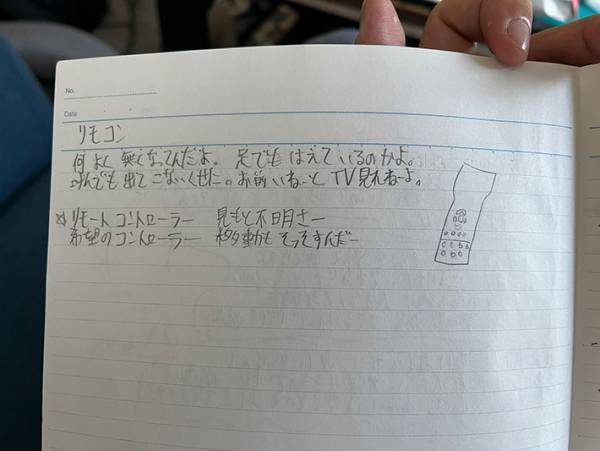 No.
Date
リモコン
何よく無くなってんだよ。足でもはえているのかよ。
呼んでも出てこないくせに。お前いねーとTV見れねーよ。
※リモートコントローラー 見もと不明さー
希望のコントローラー 移動もそっすんだー